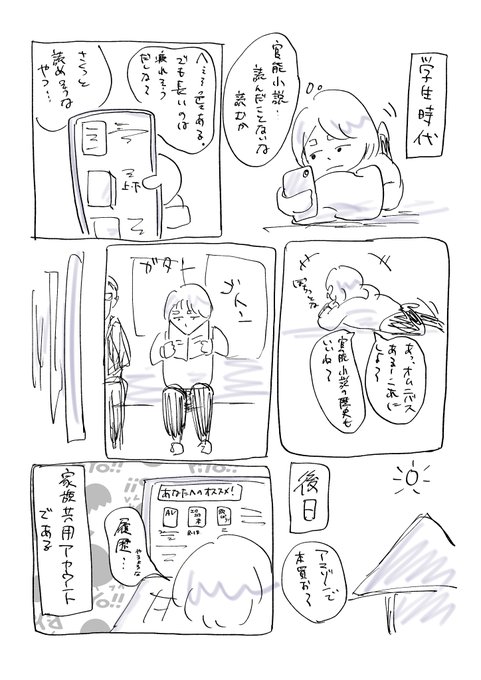 学生時代
官能小説…
読んだことないな
読むか
へ〜そこそこある。
でも長いのは
疲れそう
だしな〜
さくっと
読めそうな
やつ…
上下
あっ、オムニバス
ある！これに
しよ〜
官能小説の歴史も
いいね〜
ガター
ゴトン
後日
アマゾンで
本買お〜
あなたへのオススメ!
AV
履歴…
家族共用アカウント
である